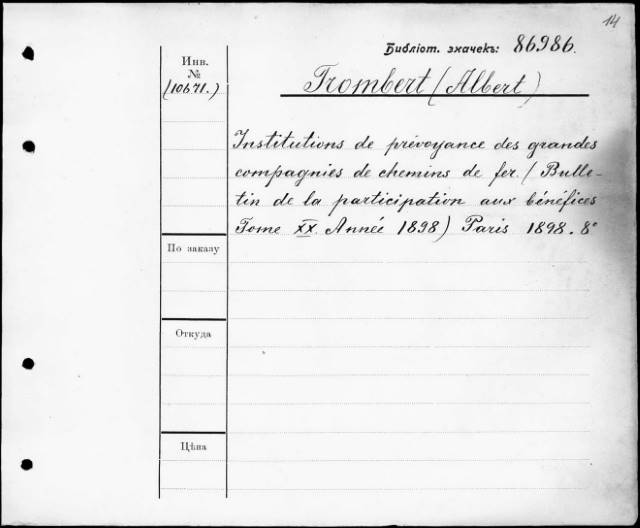 14
Библіот. значекъ: 86986.
Инв.
№
(10671.)
Trombert (Albert)
Institutions de prévoyance des grandes
compagnies de chemins de fer. (Bulle-
tin de la participation aux bénéfices
Tome XX. Année 1898) Paris 1898. 8°
По заказу
Откуда
Цѣна